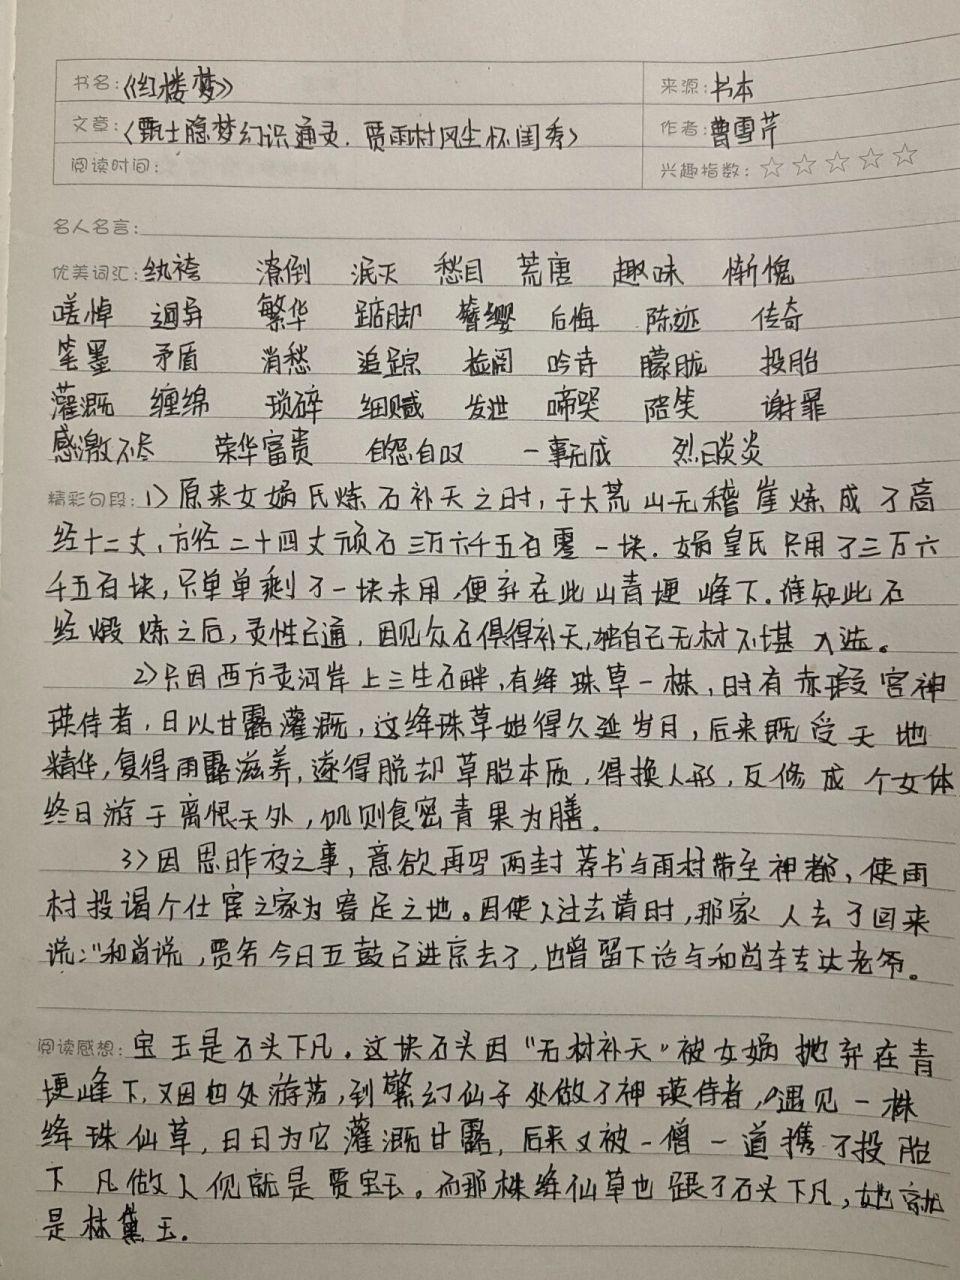 书名:《红楼梦》 来源:书本
文章:〈甄士隐梦幻识通灵.贾雨村风尘怀闺秀〉 作者:曹雪芹
阅读时间: 兴趣指数:☆☆☆☆☆
名人名言:
优美词汇:纨袴 潦倒 泯灭 愁目 荒唐 趣味 惭愧
嗟悼 迥异 繁华 踮脚 簪缨 后悔 陈迹 传奇
笔墨 矛盾 消愁 追踪 检阅 吟诗 朦胧 投胎
灌溉 缠绵 琐碎 细腻 发泄 啼哭 陪笑 谢罪
感激不尽 荣华富贵 自怨自叹 一事无成 烈日炎炎
精彩句段:1〉原来女娲氏炼石补天之时,于大荒山无稽崖炼成了高
经十二丈,方径二十四丈顽石三万六千五百零一块.女娲皇氏只用了三万六
千五百块,只单单剩了一块未用,便弃在此山青埂峰下.谁知此石
经煅炼之后,灵性已通,因见众石俱得补天,独自己无材不堪入选。
2〉只因西方灵河岸上三生石畔,有绛珠草一株,时有赤瑕宫神
瑛侍者,日以甘露灌溉,这绛珠草始得久延岁月,后来既受天地
精华,复得雨露滋养,遂得脱却草胎本质,得换人形,仅修成个女体
终日游于离恨天外,饥则食密青果为膳。
3〉因思昨夜之事,意欲再写两封荐书与雨村带至神都,使雨
村投谒个仕宦之家为寄足之地。因使人过去请时,那家人去了回来
说:"和尚说,贾爷今日五鼓已进京去了,也曾留下话与和尚转达老爷。
阅读感想:宝玉是石头下凡.这块石头因"无材补天"被女娲抛弃在青
埂峰下,又因四处游荡,到警幻仙子处做了神瑛侍者,遇见一株
绛珠仙草,日日为它灌溉甘露,后来又被一僧一道携了投胎
下凡做人便就是贾宝玉。而那株绛仙草也跟了石头下凡,她就
是林黛玉.